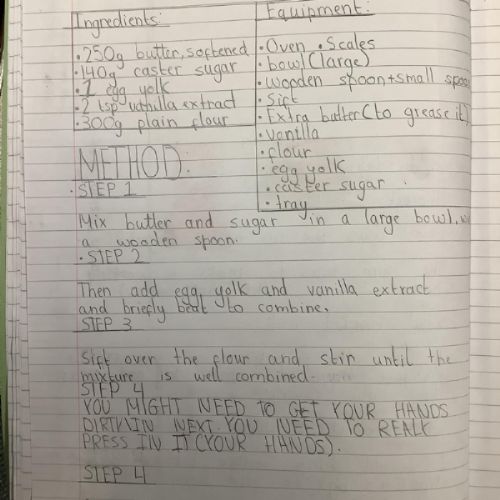 Ingredients:
• 250g butter, softened
• 140g caster sugar
• 1 egg yolk
• 2 tsp vanilla extract
• 300g plain flour
Equipment:
• Oven • Scales
• bowl (large)
• Wooden spoon + small spoo
• Sift
• Extra butter (to grease it)
• Vanilla
• flour
• egg yolk
• caster sugar
• tray
METHOD:
• STEP 1
Mix butter and sugar in a large bowl,
a wooden spoon.
• STEP 2
Then add egg yolk and vanilla extract
and briefly beat to combine.
STEP 3
Sift over the flour and stir until the
mixture is well combined.
STEP 4
YOU MIGHT NEED TO GET YOUR HANDS
IN NEXT. YOU NEED TO
PRESS IN IT (YOUR HANDS).
STEP 4